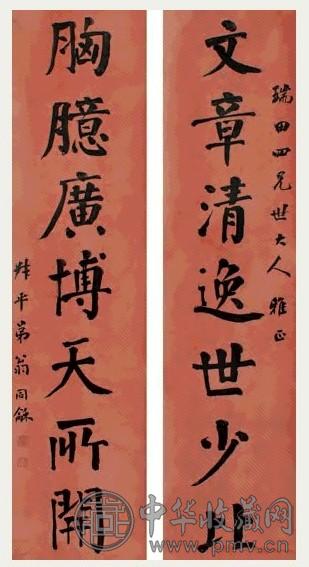 瑞田四兄世大人雅正
文章清逸世少比
胸臆廣博天所開
叔平弟翁同龢
中华收藏网
www.pmv.cn